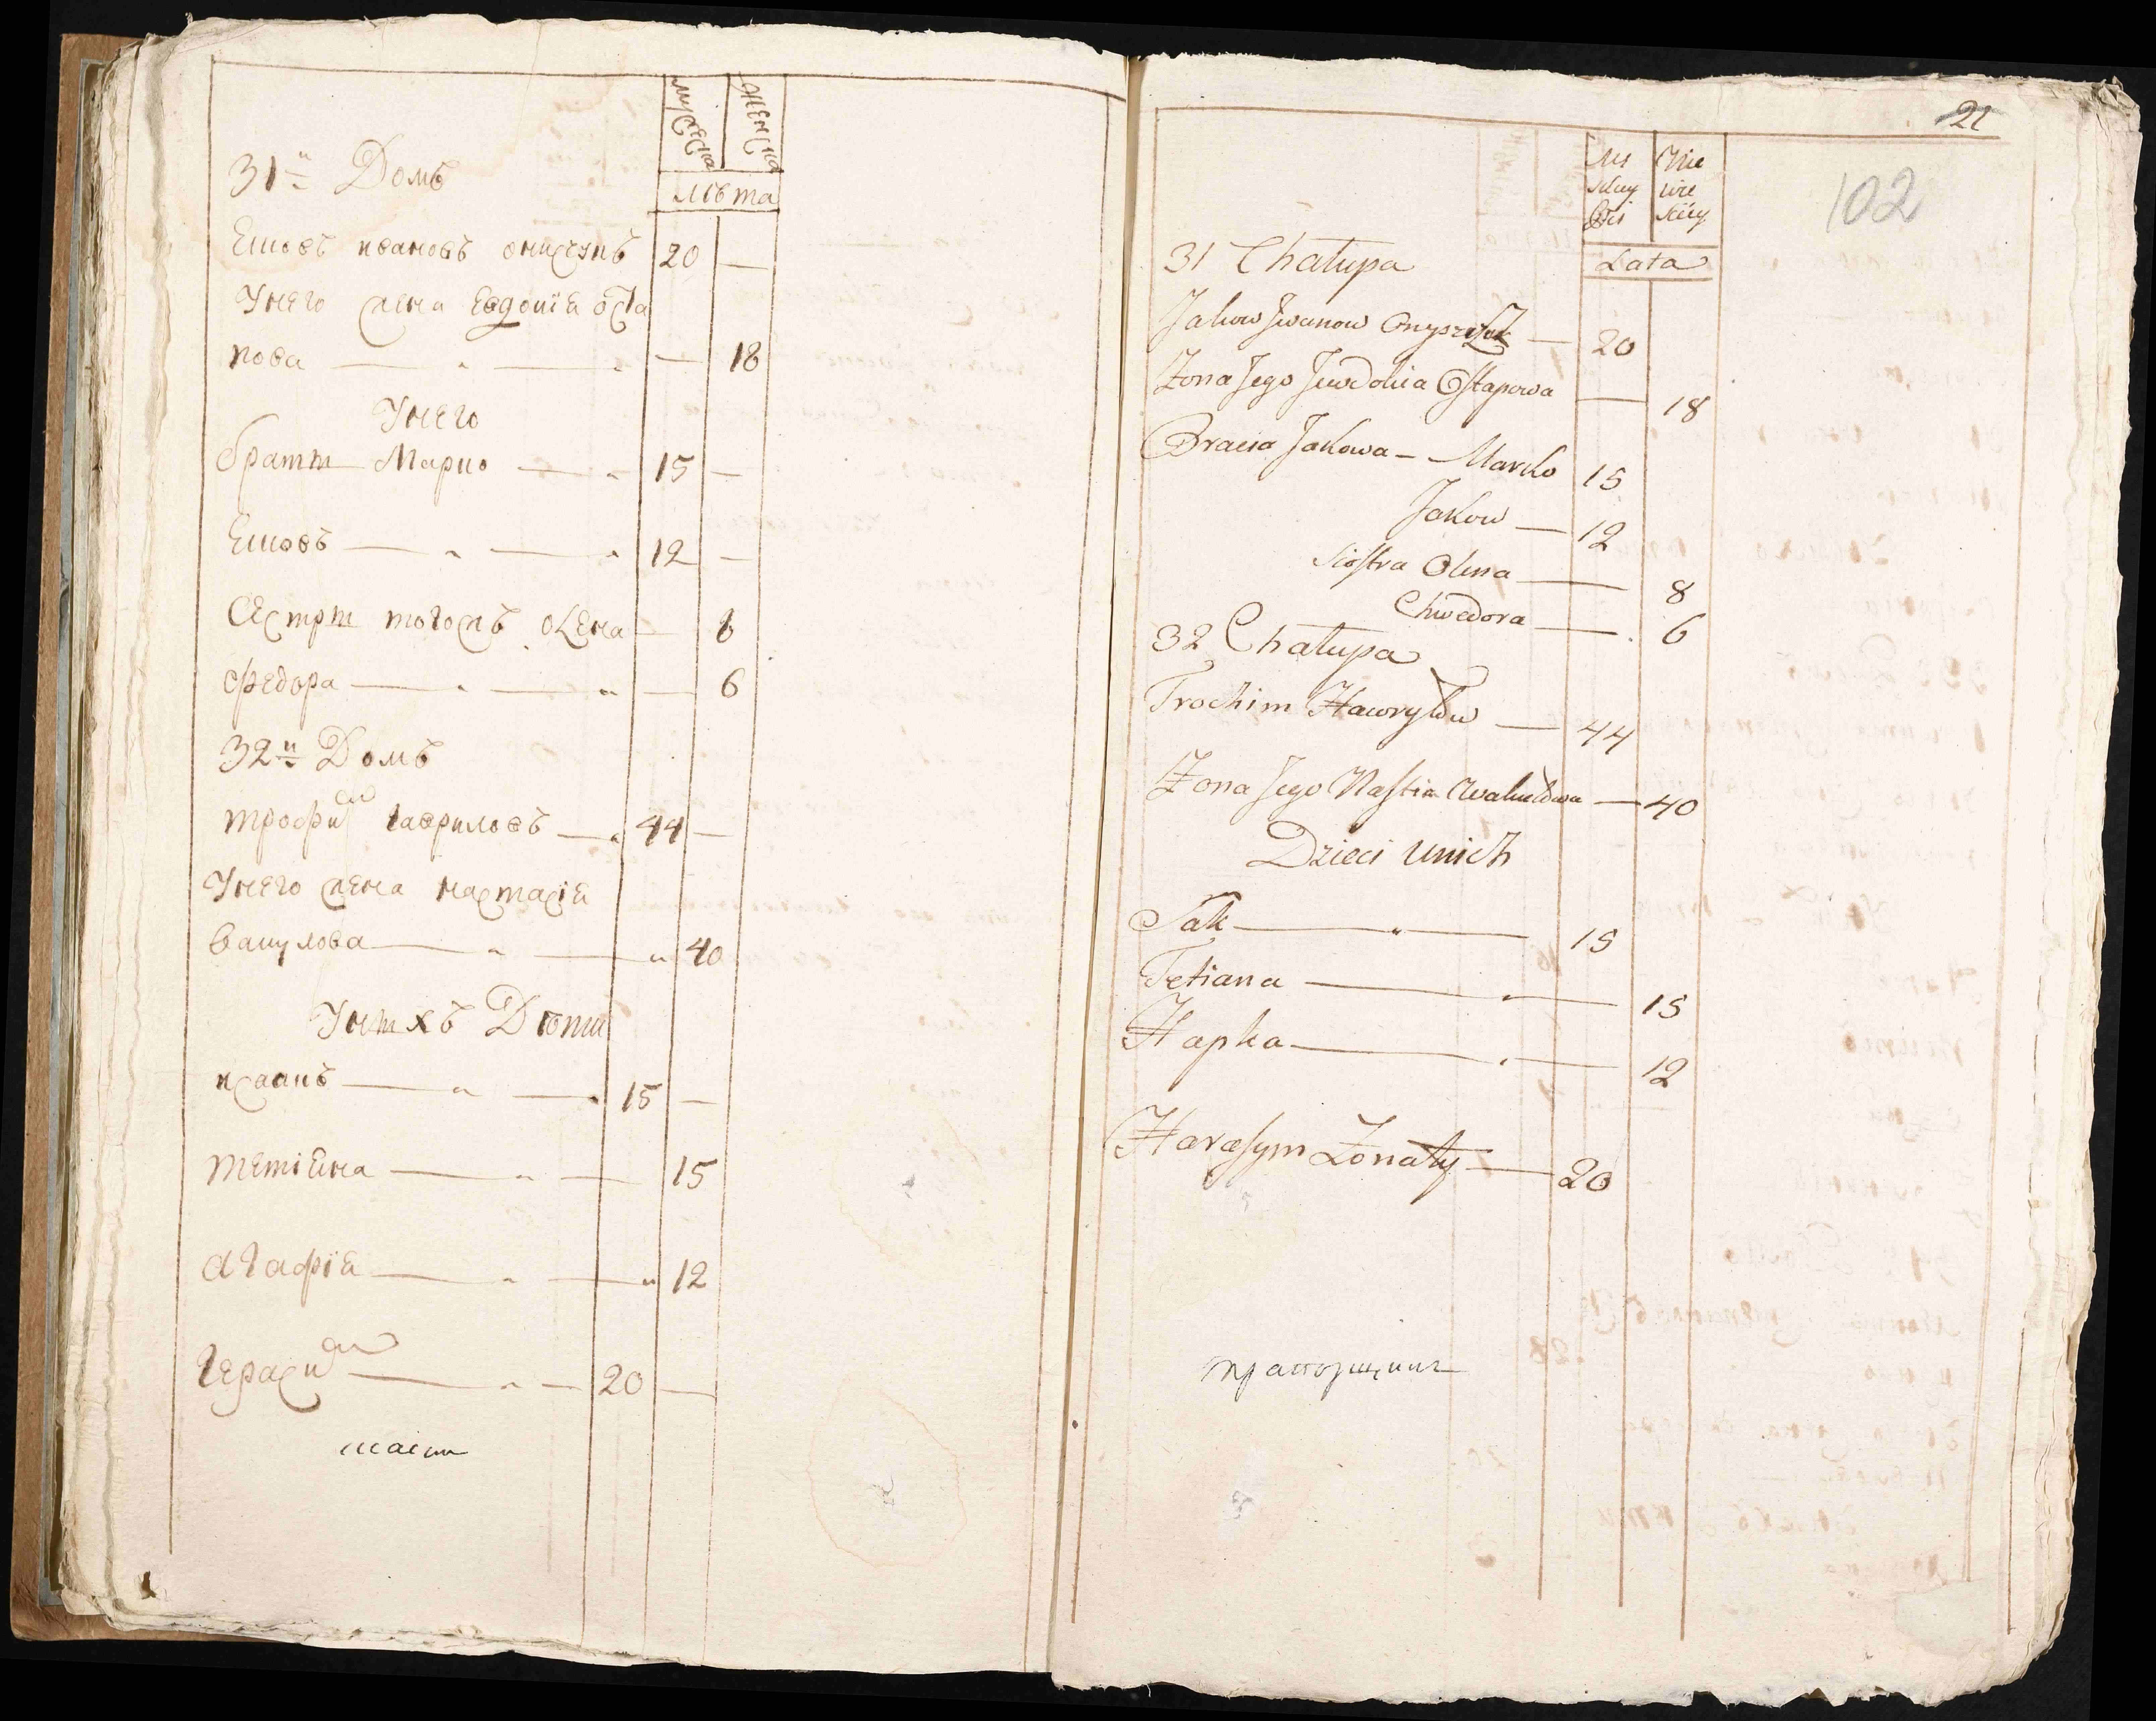 мужеска
женска
лѣта
31й Домъ
Ековъ Ивановъ Онищукъ 20 —
У него жена Евдокіѣ Оста
пова — " — " — 18
У него
братт Марко — " 15 —
Ековъ — " — " 12 —
Сестрт тогожъ Олена — 8
Федора — " — " — 6
32й Домъ
Трофим Гавриловъ — " 44 —
У него жена Настасіѣ
Вакулова — " — " 40
У нихъ Дѣти
Исаакъ — " — " 15 —
Тетіѣна — " — 15
Агафіѣ — " — " 12
Герасим — " — 20 —
21
102
Męs kiey płci
Nie wie skiey
Lata
31 Chałupa
Jakow Jwanow Onyszczuk — 20
Żona Jego Jewdokia Ostapowa — 18
Bracia Jakowa — Marko 15
Jakow — 12
Siostra Olena — 8
Chwedora — 6
32 Chałupa
Trochim Hawryłow — 44
Żona Jego Nastia Wakułowa — 40
Dzieci u nich
Sak — " — 15
Tetiana — " — 15
Hapka — " — 12
Harasym Żonaty — 20
прапорщикъ